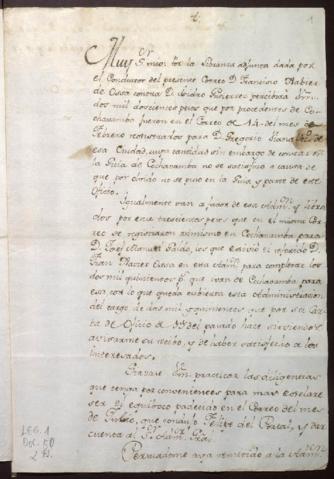 1
Muy Sr
mio: Por la Libranza adjunta dada por
el Conductor del presente Correo D. Francisco Xabier
de Ossa contra D. Isidro Gutierrez percibirá Vm
dos mil doscientos pesos que por procedentes de Co-
chavamba fueron en el Correo de 14 del mes de
Febrero rexistrados para D. Gregorio
esa Ciudad, cuya cantidad sin embargo de constar en
la Guia de Cochavamba no se satisfizo a causa de
que por olvido no se puso en la Guia, y parte de este
Oficio.
Igualmente van a favor de esa Adm.on y libra-
dos por ese trescientos pesos que en el mismo Co-
rreo se registraron asimismo en Cochavamba para
D. Josef Manuel Pardo, los que exivió el referido D.
Fran.co Xavier Ossa en esta Adm.on para completar los
dos mil quinientos p.s que van de Cochavamba para
esa, con lo que queda cubierta esta Administracion
del cargo de dos mil y quinientos que por su Car-
ta de Oficio de del pasado hace sirviendose
avisarme su recivo, y de haber satisfecho a los
Interesados.
Vm practicar las diligencias
que tenga por convenientes para mas esclare-
ser el equiboco padecido en el Correo del mes
de que condujo Felipe del y dar
cuenta al S.
remitido a la Adm.on
LEG. 1
Doc. 50
2 fl.